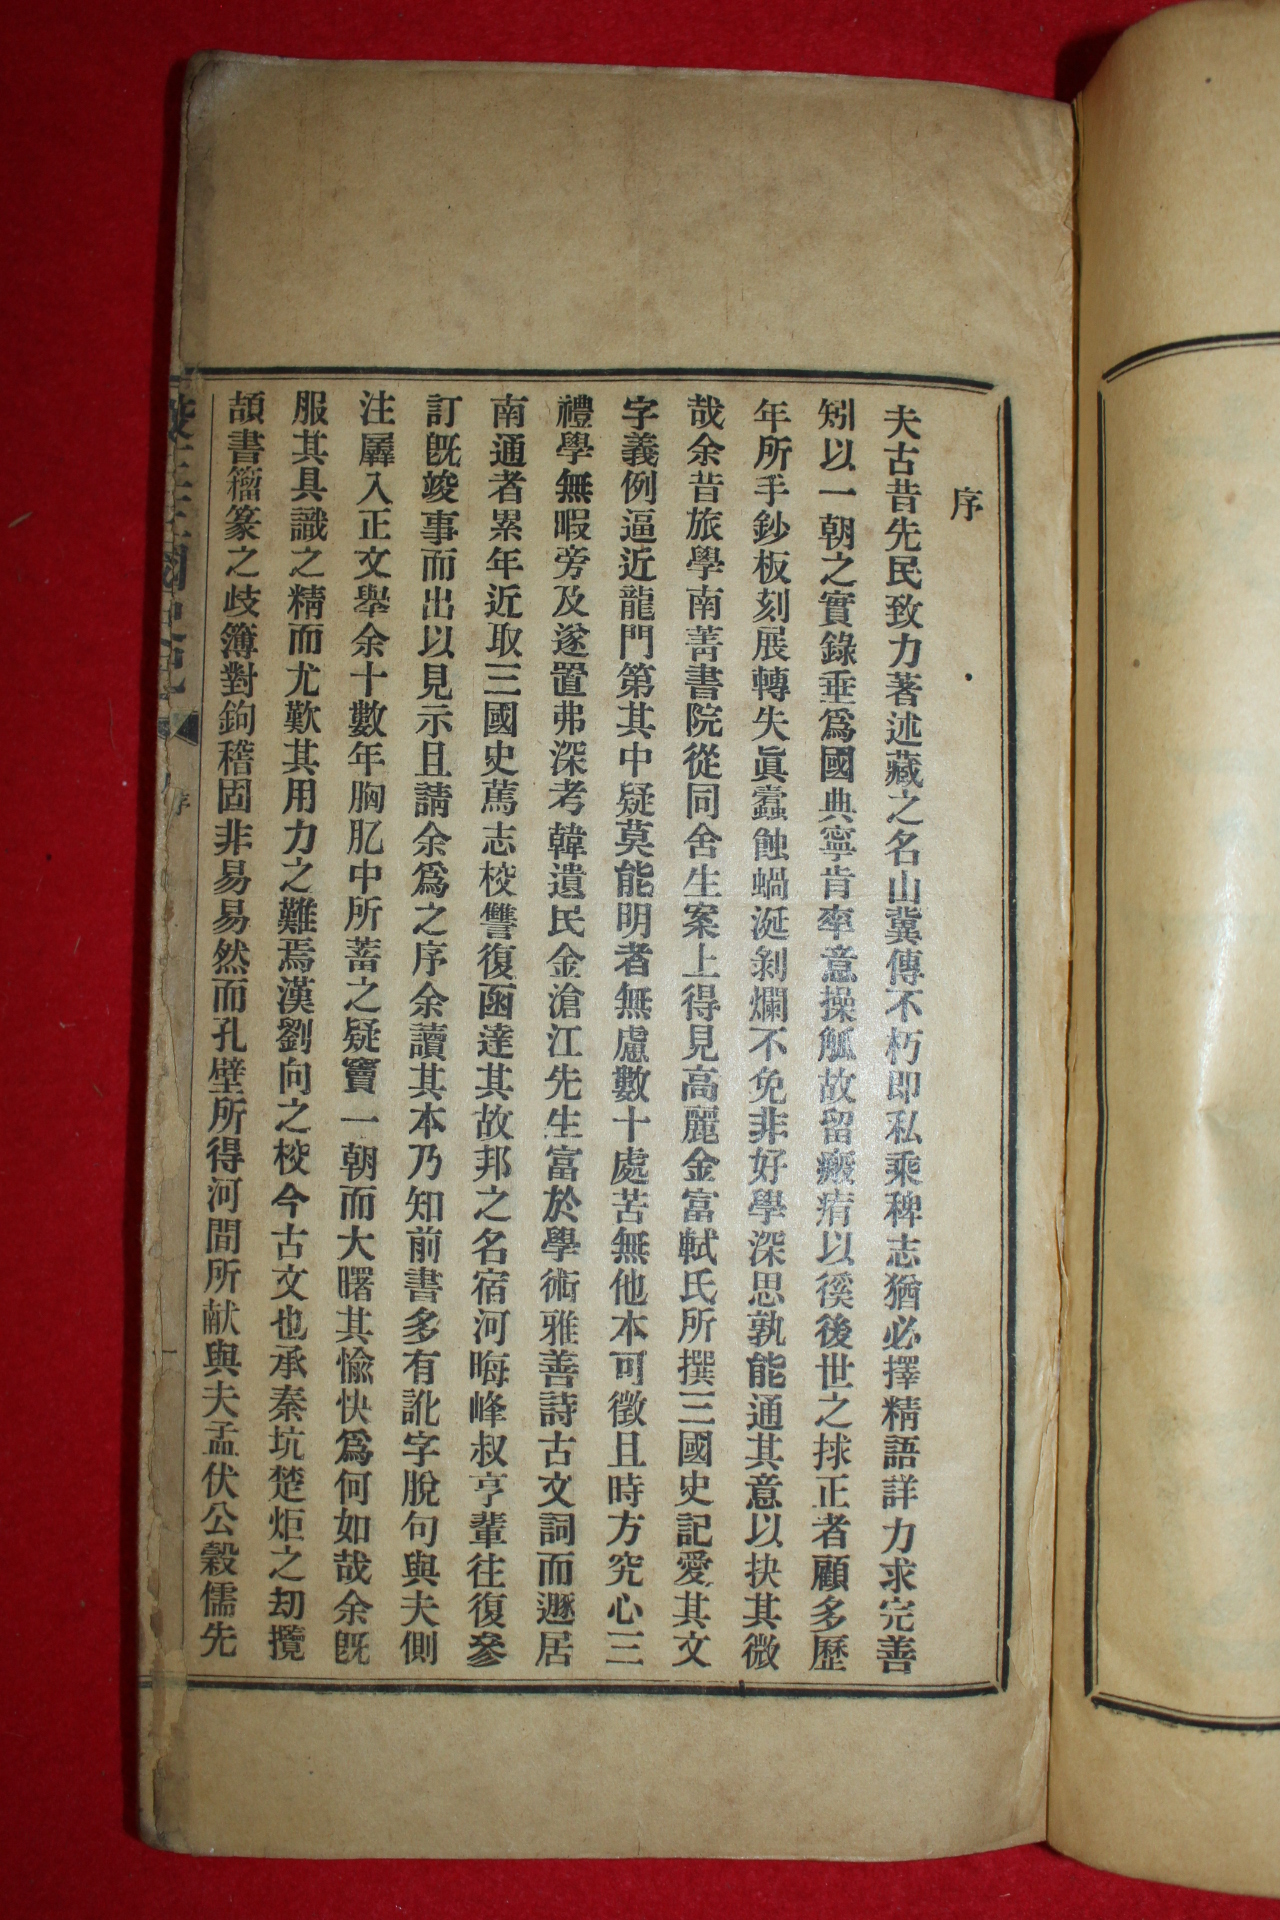 序
夫古昔先民致力著述藏之名山冀傳不朽即私乘稗志猶必擇精語詳力求完善
矧以一朝之實錄垂爲國典寧肯率意操觚故留瘢痏以徯後世之捄正者顧多歷
年所手鈔板刻展轉失眞蠹蝕蝸涎剝爛不免非好學深思孰能通其意以抉其微
哉余昔旅學南菁書院從同舍生案上得見高麗金富軾氏所撰三國史記愛其文
字義例逼近龍門第其中疑莫能明者無慮數十處苦無他本可徵且時方究心三
禮學無暇旁及遂置弗深考韓遺民金滄江先生富於學術雅善詩古文詞而遯居
南通者累年近取三國史蔿志校讐復函達其故邦之名宿河晦峰叔亨輩往復參
訂旣竣事而出以見示且請余爲之序余讀其本乃知前書多有訛字脫句與夫側
注羼入正文舉余十數年胸肊中所蓄之疑竇一朝而大曙其愉快爲何如哉余旣
服其具識之精而尤歎其用力之難焉漢劉向之校今古文也承秦坑楚炬之刧攬
頡書籀篆之歧簿對鉤稽固非易易然而孔壁所得河間所献與夫孟伏公穀儒先
校正三國史記
序
一